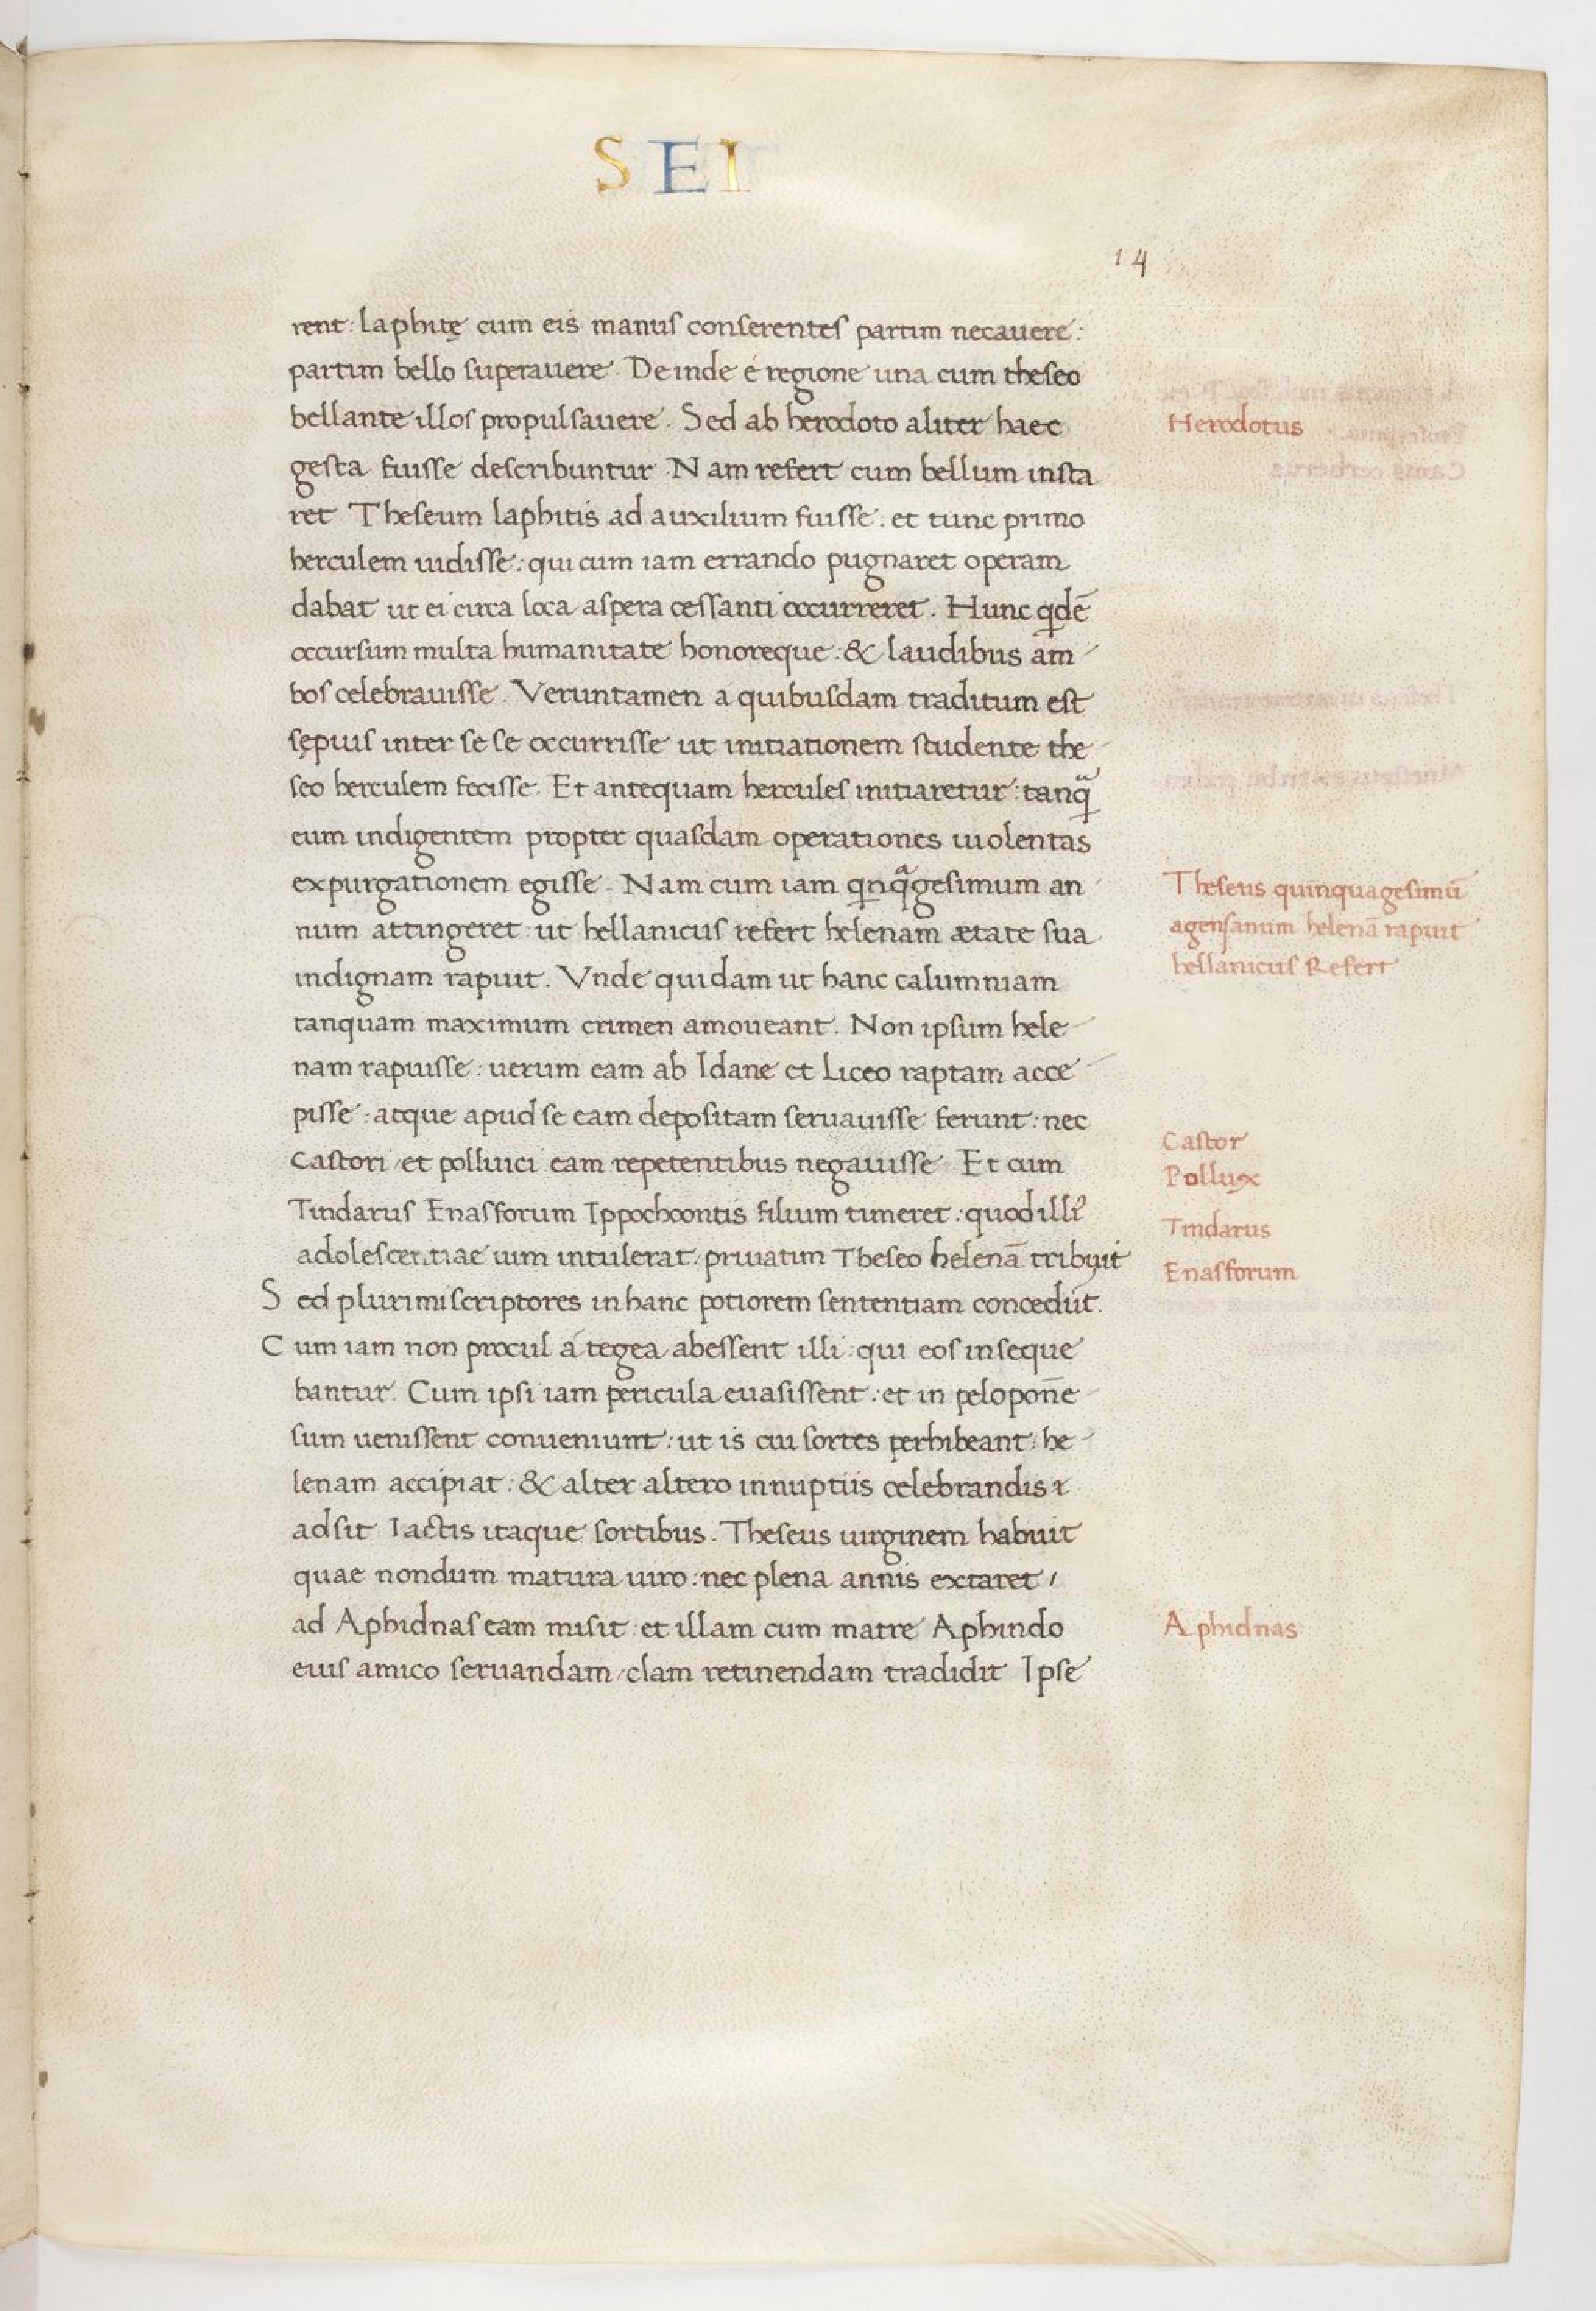 SEI
14
rent: laphitę cum eis manus conserentes partim necauere:
partim bello superauere. Deinde é regione una cum theseo
bellante illos propulsauere. Sed ab herodoto aliter haec
Herodotus
gesta fuisse describuntur. Nam refert cum bellum insta
ret Theseum laphitis ad auxilium fuisse: et tunc primo
herculem uidisse: qui cum iam errando pugnaret operam
dabat ut ei circa loca aspera cessanti occurreret. Hunc qdē
occursum multa humanitate honoreque: & laudibus am
bos celebrauisse. Veruntamen á quibusdam traditum est
sępius inter se se occurrisse ut initiationem studente the
seo herculem fecisse. Et antequam hercules initiaretur: tanqᵃ
eum indigentem propter quasdam operationes uiolentas
expurgationem egisse. Nam cum iam qnqᵃgesimum an
Theseus quinquagesimū
num attingeret: ut hellanicus refert helenam ætate sua
agens anum helenā rapuit
indignam rapuit. Vnde quidam ut hanc calumniam
hellanicus Refert
tanquam maximum crimen amoueant. Non ipsum hele
nam rapuisse: uerum eam ab Idane et Liceo raptam acce
pisse: atque apud se eam depositam seruauisse ferunt: nec
Castor
Castori et polluici eam repetentibus negauisse. Et cum
Pollux
Tindarus Enasforum Ippochoontis filium timeret: quod illi
Tindarus
adolescentiae uim intulerat, priuatim Theseo helenā tribuit
Enasforum
Sed plurimi scriptores in hanc potiorem sententiam concedūt.
Cum iam non procul á tegea abessent illi: qui eos inseque
bantur. Cum ipsi iam pericula euasissent: et in pelopoñe
sum uenissent conueniunt: ut is cui sortes perhibeant: he
lenam accipiat: & alter altero in nuptiis celebrandis
adsit Iactis itaque sortibus. Theseus uirginem habuit
quae nondum matura uiro: nec plena annis extaret,
ad Aphidnas eam misit: et illam cum matre Aphindo
Aphidnas
eius amico seruandam, clam retinendam tradidit Ipse